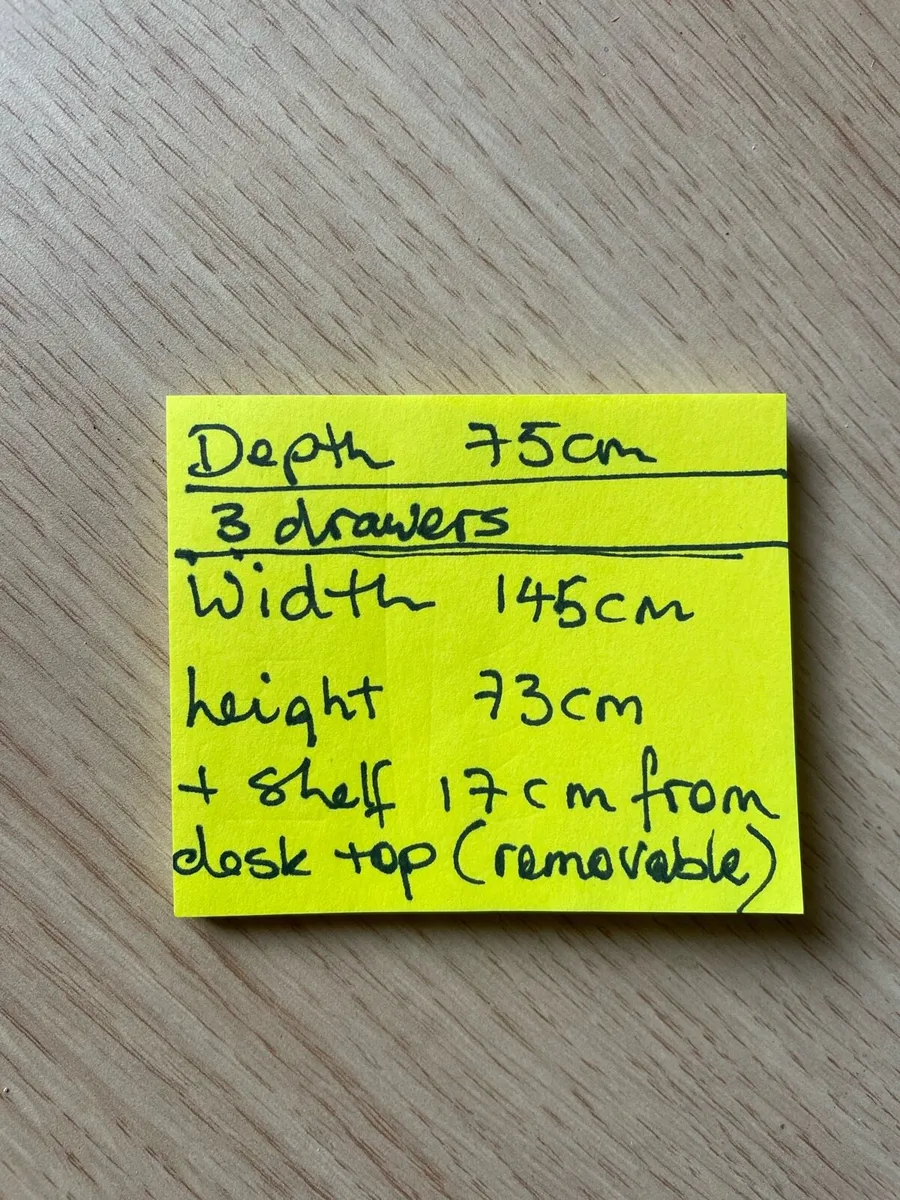 Depth 75cm
3 drawers
Width 145cm
height 73cm
+ shelf 17cm from
desk top (removable)